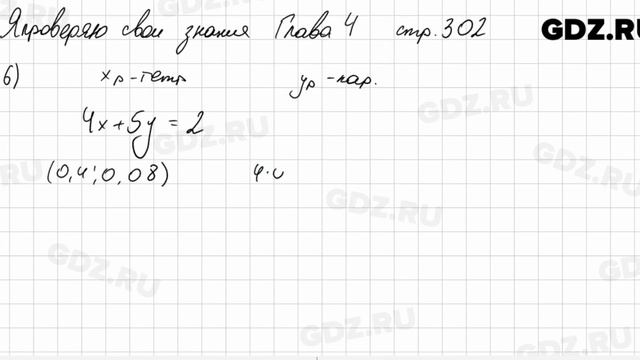 Я проверяю свои знания Глава 4 стр. 302
GDZ.RU
6) xр - тетр yр - кар.
4x+5y=2
(0,4; 0,08) 4·0
GDZ.RU
GDZ.RU
GDZ.RU
GDZ.RU
GDZ.RU
GDZ.RU
GDZ.RU